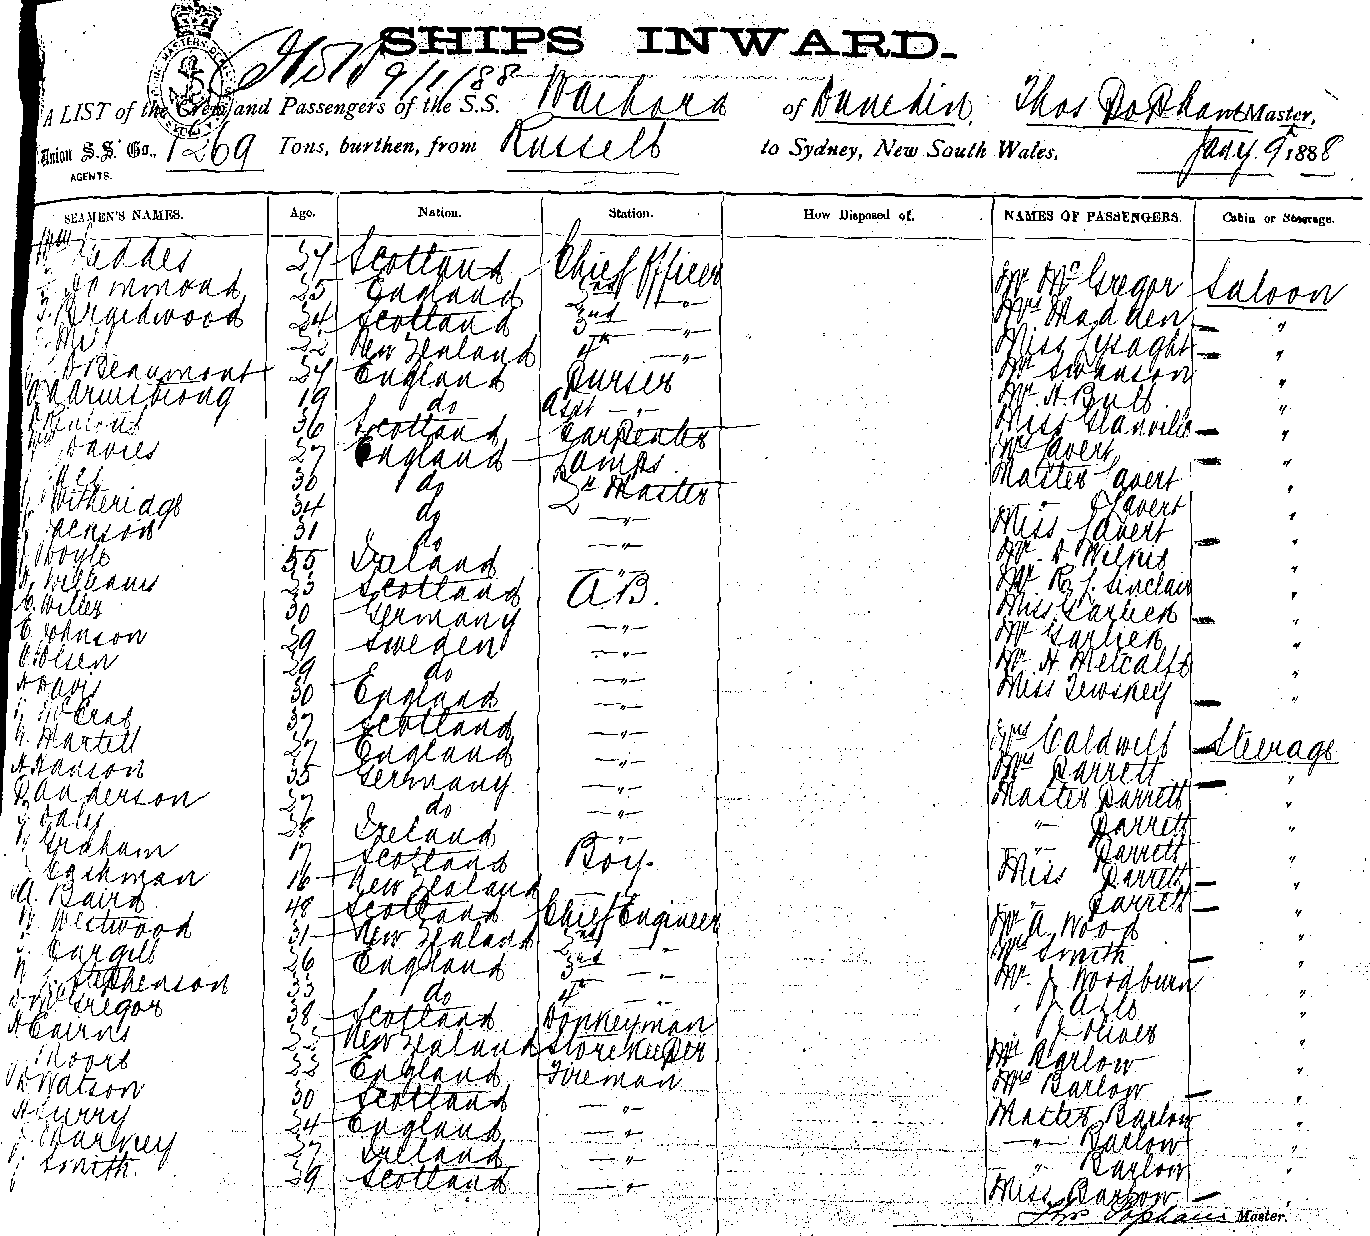 SHIPS INWARD.
9/1/88
A LIST of the Crew and Passengers of the S.S. Waihora of Dunedin, Thos Popham Master,
Union S.S. Co., 1269 Tons, burthen, from Russell to Sydney, New South Wales, Jany 9 1888
AGENTS.
SEAMEN'S NAMES. Age. Nation. Station. How Disposed of. NAMES OF PASSENGERS. Cabin or Steerage.
Wm Geddes 34 Scotland Chief Officer Mr McGregor Saloon
25 England 2nd —"— Mrs Madden "
34 Scotland 3rd —"— Miss Lysaght "
22 New Zealand 4th —"— Mr Swanson "
Beaumont 34 England Purser Mr A Bull "
Armstrong 19 do Asst —"— Miss Glanville "
36 Scotland Carpenter Mrs Lavert "
Davies 27 England Lamps Master Lavert "
30 do Qr Master —"— Lavert "
Witheridge 34 do —"— Miss Lavert "
Jenson 31 do —"— Mr D Wilkie "
Doyle 55 Ireland —"— Mr R J Sinclair "
Williams 23 Scotland A.B. Miss Garlick "
Willer 30 Germany —"— Mr Garlick "
E Johnson 29 Sweden —"— Mr H Metcalfe "
C Olsen 29 do —"— Miss Lewskey "
H Davis 30 England —"—
McCrae 37 Scotland —"— Mrs Caldwell Steerage
Martell 27 England —"— Mrs Barrett "
A Hanson 35 Germany —"— Master Barrett "
D Anderson 27 do —"— —"— Barrett "
J Daly 38 Ireland —"— Barrett
Graham 17 Scotland Boy. Miss Barrett "
Cashman 16 New Zealand —"— " Barrett "
A. Baird 48 Scotland Chief Engineer Mr A. Wood "
W Westwood 31 New Zealand 2nd —"— Smith "
J Cargill 26 England 3rd —"— Mr. J Woodburn "
Stephenson 33 do 4th —"— " J Able "
McGregor 38 Scotland Donkeyman J Oliver "
A Cairns New Zealand Storekeeper Mr Barlow "
Moore 22 England Fireman Mrs Barlow "
Watson 30 Scotland —"— Master Barlow "
A Curry 24 England —"— —"— Barlow "
27 Ireland —"— " Barlow "
J Smith. 39 Scotland —"— Miss Barlow "
Thos Popham Master.